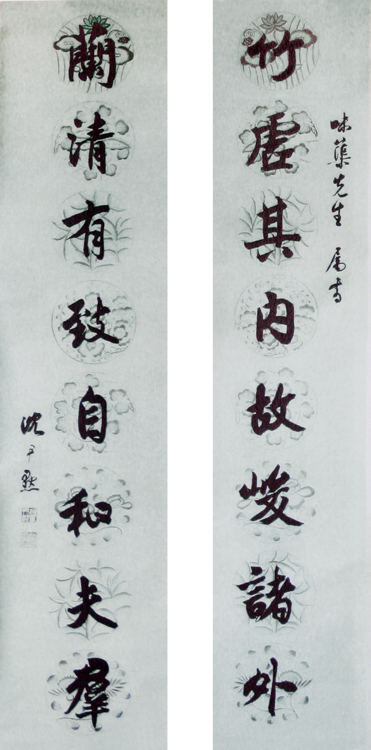 竹虛其內故峻諸外
味䕃先生 属书
蘭清有致自和夫羣
沈尹默